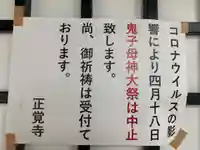 コロナウイルスの影
響により四月十八日
鬼子母神大祭は中止
致します。
尚、御祈祷は受付て
おります。
正覚寺